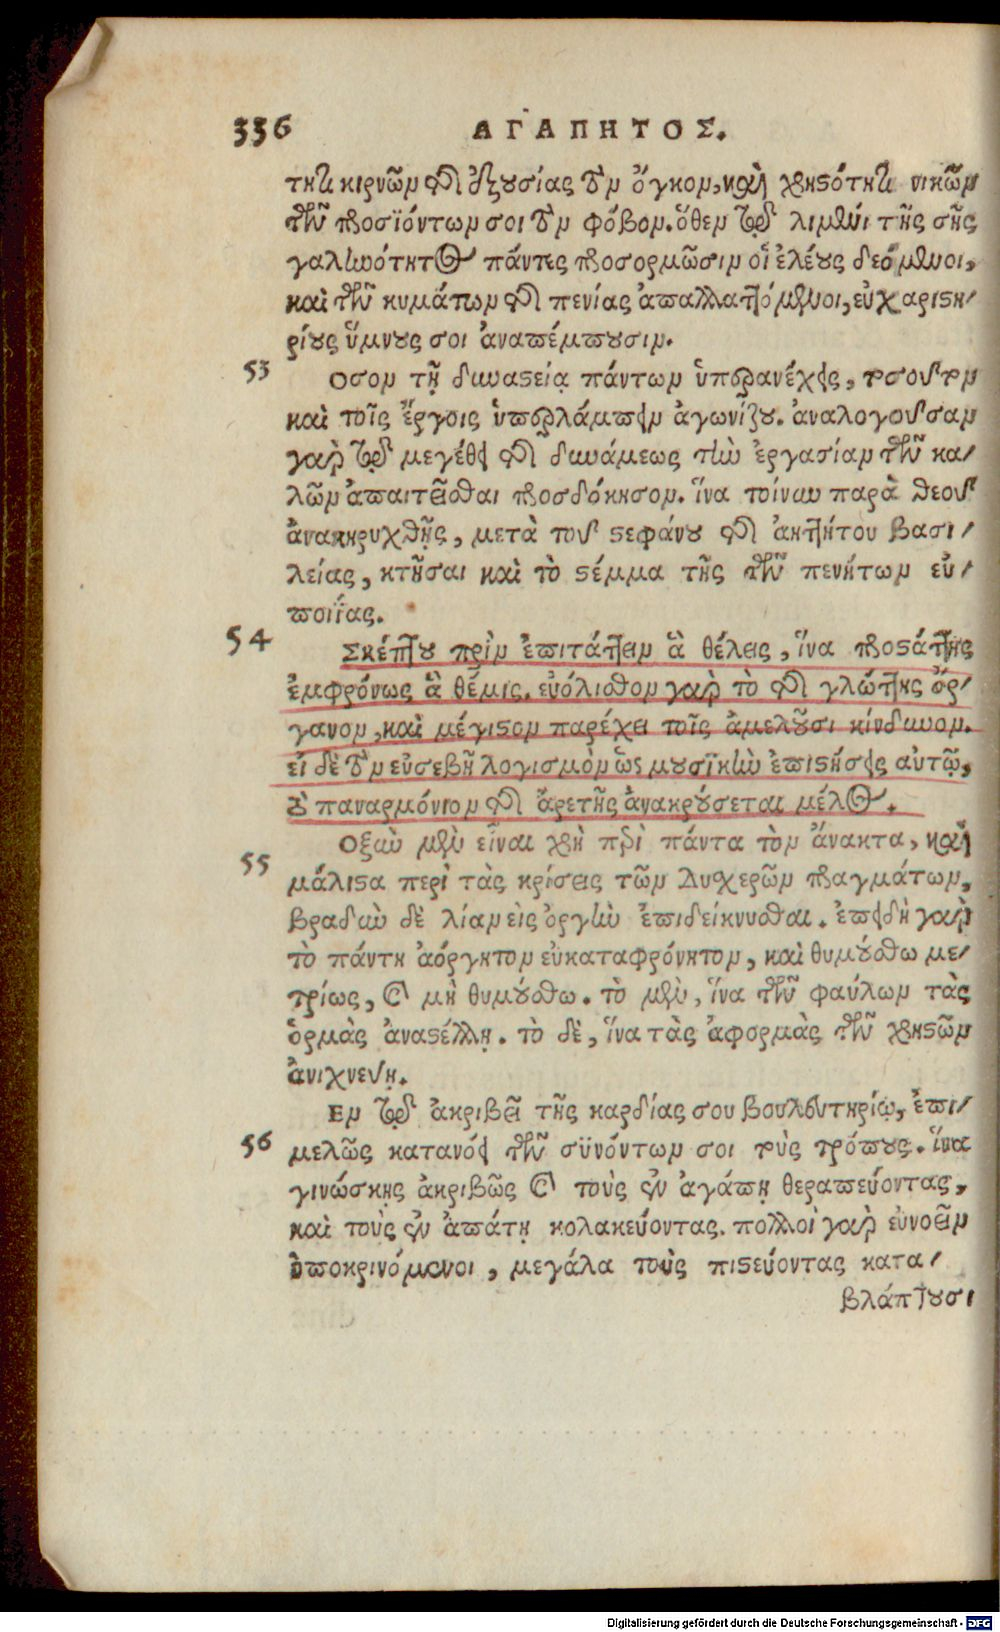 336 ΑΓΑΠΗΤΟΣ.
τητι κιρνῶν τῆς ἐξουσίας τὸν ὄγκον, καὶ χρηστότητι νικῶν
τῶν προσϊόντων σοι τὸν φόβον. ὅθεν τῷ λιμένι τῆς σῆς
γαληνότητος πάντες προσορμῶσιν οἱ ἐλέους δεόμενοι,
καὶ τῶν κυμάτων τῆς πενίας ἀπαλλαττόμενοι, εὐχαριστη-
ρίους ὕμνους σοι ἀναπέμπουσιν.
53 Οσον τῇ δυναστείᾳ πάντων ὑπερανέχεις, τοσοῦτον
καὶ τοῖς ἔργοις ὑπερλάμπειν ἀγωνίζου. ἀναλογοῦσαν
γὰρ τῷ μεγέθει τῆς δυνάμεως τὴν ἐργασίαν τῶν κα-
λῶν ἀπαιτεῖσθαι προσδόκησον. ἵνα τοίνυν παρὰ θεοῦ
ἀνακηρυχθῇς, μετὰ τοῦ στεφάνου τῆς ἀηττήτου βασι-
λείας, κτῆσαι καὶ τὸ στέμμα τῆς τῶν πενήτων εὐ-
ποιΐας.
54 Σκέπτου πρὶν ἐπιτάττειν ἃ θέλεις, ἵνα προστάττῃς
ἐμφρόνως ἃ θέμις. εὐόλισθον γὰρ τὸ τῆς γλώττης ὄρ-
γανον, καὶ μέγιστον παρέχει τοῖς ἀμελοῦσι κίνδυνον.
εἰ δὲ τὸν εὐσεβῆ λογισμὸν ὡς μουσϊκὴν ἐπιστήσεις αὐτῷ,
τὸ παναρμόνιον τῆς ἀρετῆς ἀνακρούσεται μέλος.
55 Οξὺν μὲν εἶναι χρὴ πρὸς πάντα τὸν ἄνακτα, καὶ
μάλιστα περὶ τὰς κρίσεις τῶν δυσχερῶν πραγμάτων,
βραδὺν δὲ λίαν εἰς ὀργὴν ἐπιδείκνυσθαι. ἐπειδὴ γὰρ
τὸ πάντη ἀόργητον εὐκαταφρόνητον, καὶ θυμούσθω με-
τρίως, καὶ μὴ θυμούσθω. τὸ μὲν, ἵνα τῶν φαύλων τὰς
ὁρμὰς ἀναστέλλῃ. τὸ δὲ, ἵνα τὰς ἀφορμὰς τῶν χρηστῶν
ἀνιχνεύῃ.
56 Εν τῷ ἀκριβεῖ τῆς καρδίας σου βουλευτηρίῳ, ἐπι-
μελῶς κατανόει τῶν σϋνόντων σοι τοὺς τρόπους. ἵνα
γινώσκῃς ἀκριβῶς καὶ τοὺς ἐν ἀγάπῃ θεραπεύοντας,
καὶ τοὺς ἐν ἀπάτῃ κολακεύοντας. πολλοὶ γὰρ εὐνοεῖν
ὑποκρινόμενοι, μεγάλα τοὺς πιστεύοντας κατα-
βλάπτουσι
Digitalisierung gefördert durch die Deutsche Forschungsgemeinschaft - DFG